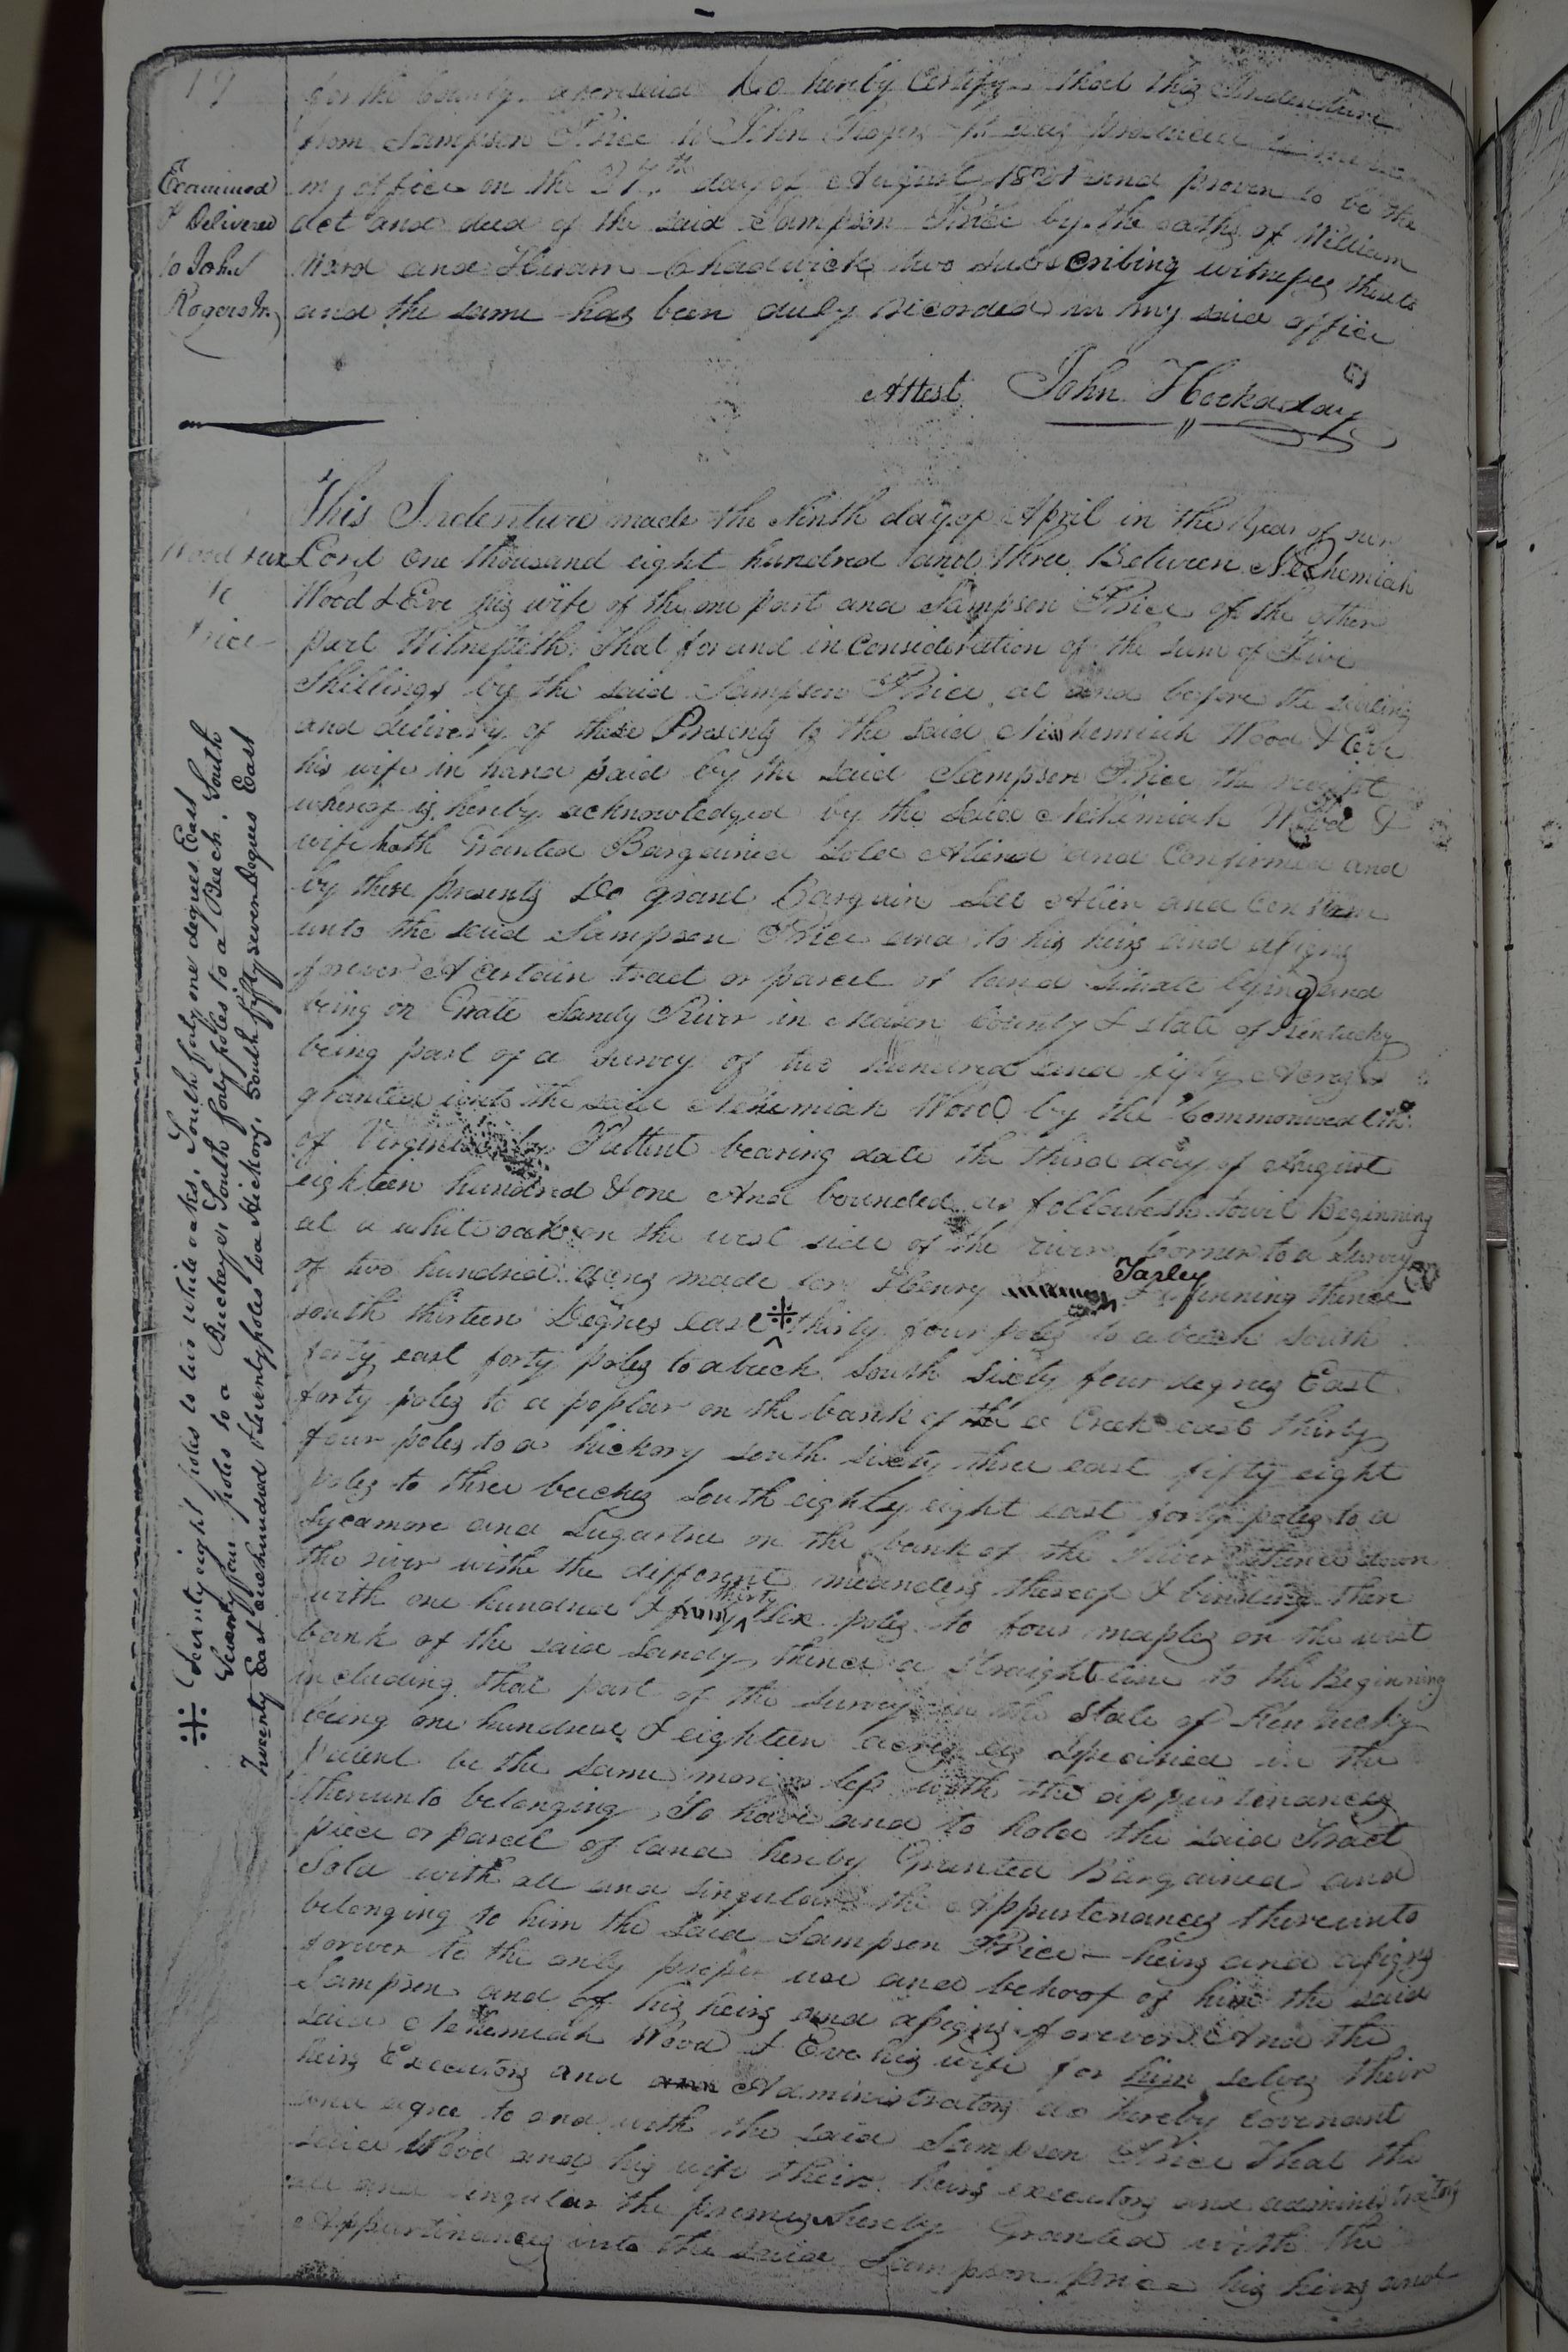 for the County aforesaid Do hereby Certify that this Indenture
from Sampson Price to John Rogers was produced
Examined my office on the day of August and proven to be the
& Delivered act and deed of the said Sampson Price by the oaths of William
to John Ward and Hiram Chadwick two subscribing witnesses thereto
Rogers Jr. and the same has been duly recorded in my said office
Attest John Hockaday
This Indenture made the Ninth day of April in the Year of our
Wood &ux Lord one thousand eight hundred and three Between Nechemiah
To Wood & Eve his wife of the one part and Sampson Price of the other
Price part Witnesseth: That for and in Consideration of the sum of Five
Shillings by the said Sampson Price at and before the sealing
and delivery of these Presents to the said Nehemiah Wood & Eve
his wife in hand paid by the said Sampson Price the receipt
whereof is hereby acknowledged by the said Nehemiah Wood &
wife hath Granted Bargained sold Aliend and Confirmed and
by these presents Do grant Bargain Sell Alien and Confirm
unto the said Sampson Price and to his heirs and assigns
forever A certain tract or parcel of land situate lying and
being on Grate Sandy River in Mason County & state of Kentucky
being part of a survey of two hundred and fifty Acres
granted unto the said Nehemiah Wood by the Commonwealth
of Virginia by Pattent bearing date the third day of August
eighteen hundred & one And bounded as followeth towit Beginning
at a white oak on the west side of the river corner to a survey
of two hundred acres made for Henry Tarley runing thence
south thirteen Degrees east ※ thirty four poles to a beech south
forty east forty poles to a beech south sixty four degrees East
forty poles to a poplar on the bank of the a Creek east thirty
four poles to a hickory south sixty three east fifty eight
poles to three beeches South eighty eight east forty poles to a
Sycamore and Sugartree on the bank of the River thence down
the river withe the different meanders thereof & binding there
with one hundred & thirty six poles to four maples on the west
bank of the said Sandy, thence a straight line to the Beginning
including that part of the survey in the State of Kentucky
being one hundred & eighteen acres as specified in the
Patent be the same more or less with the appurtenances
thereunto belonging, To have and to hold the said Tract
piece or parcel of land hereby Granted Bargained and
Sold with all and singular the Appurtenances thereunto
belonging to him the said Sampson Price heirs and assigns
forever to the only proper use and behoof of him the said
Sampson and of his heirs and assigns forever. And the
said Nehemiah Wood & Eve his wife for him selves their
heirs Executors and and Administrators do hereby covenant
and agree to and with the said Sampson Price That the
said Wood and his wife their heirs executors and administrators
all and singular the premises hereby Granted with the
Appurtinances unto the said Sampson price his heirs and
※ Seventy eight poles to two white oaks, South forty one degrees East
Seventy four poles to a Buckeye, South forty poles to a Beech, South
Twenty East one hundred & seventy poles to a Hickory, South fifty seven Degrees East